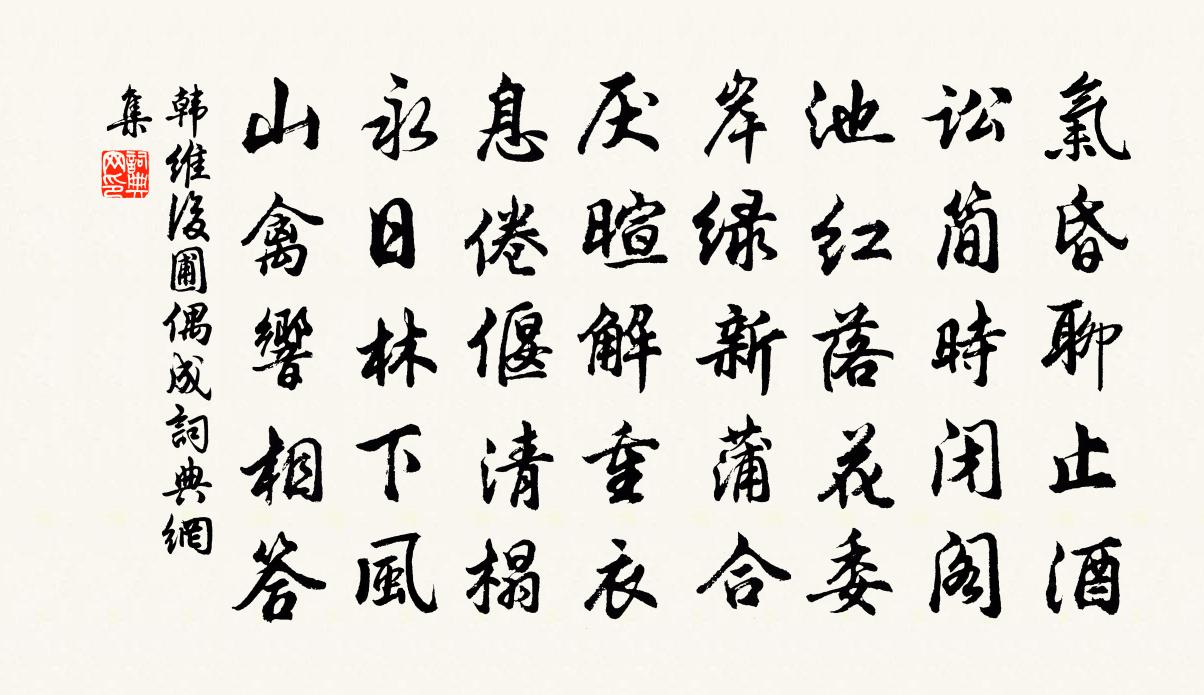 氣昏聊止酒
訟簡時闭阁
池红落花委
岸绿新蒲合
厌暄解重衣
息倦偃清榻
永日林下風
山禽響相答
韩維後圃偶成詞典網
集
詞典
网印